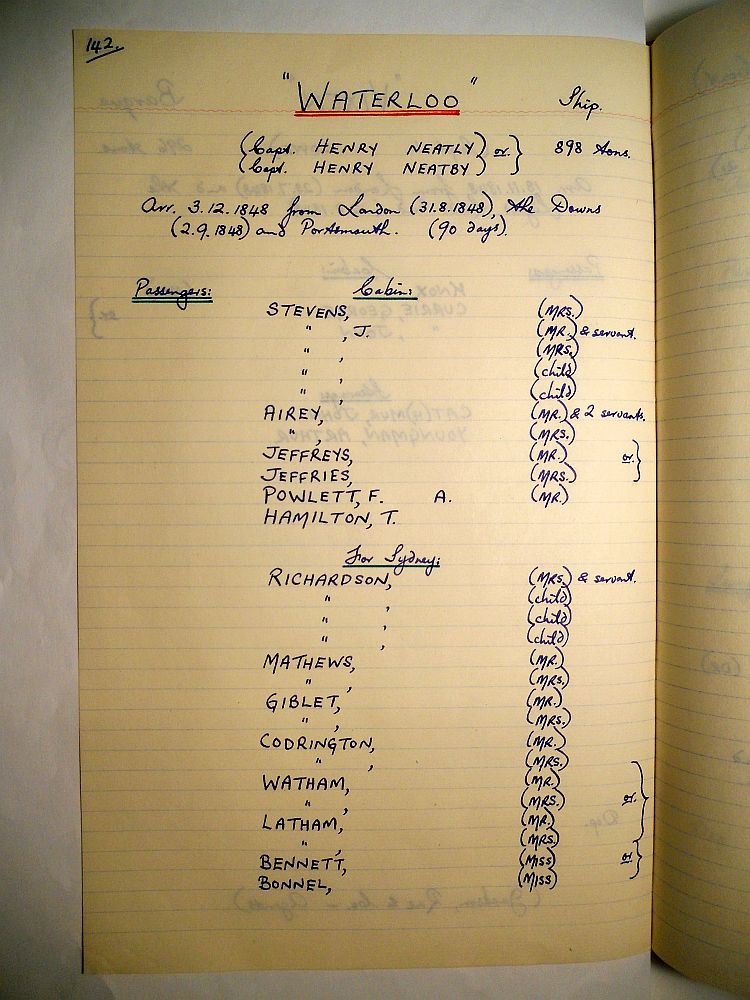 142.
"WATERLOO" Ship.
(Capt. HENRY NEATLY) or } 898 tons.
(Capt. HENRY NEATBY) }
Arr. 3.12.1848 from London (31.8.1848), the Downs
(2.9.1848) and Portsmouth. (90 days).
Passengers: Cabin:
STEVENS, (MRS.)
" , J. (MR.) & servant.
" , (MRS.)
" , (child)
" , (child)
AIREY, (MR.) & 2 servants.
" , (MRS.)
JEFFREYS, (MR.) or }
JEFFRIES, (MRS.) }
POWLETT, F. A. (MR.)
HAMILTON, T.
For Sydney:
RICHARDSON, (MRS.) & servant.
" , (child)
" , (child)
" , (child)
MATHEWS, (MR.)
" , (MRS.)
GIBLET, (MR.)
" , (MRS.)
CODRINGTON, (MR.)
" , (MRS.)
WATHAM, (MR.)
" , (MRS.) or }
LATHAM, (MR.)
" , (MRS.)
BENNETT, (MISS) or }
BONNEL, (MISS)